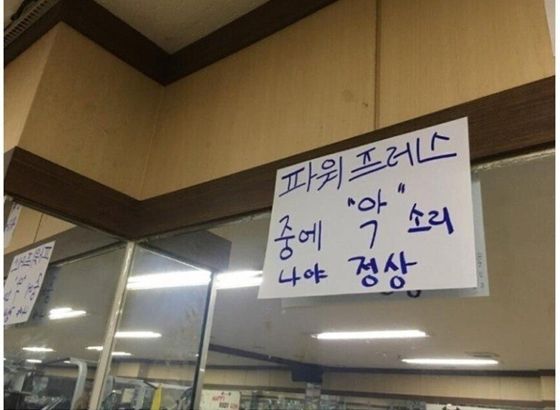 파워프레스
중에 "악" 소리
나야 정상
HAPPY